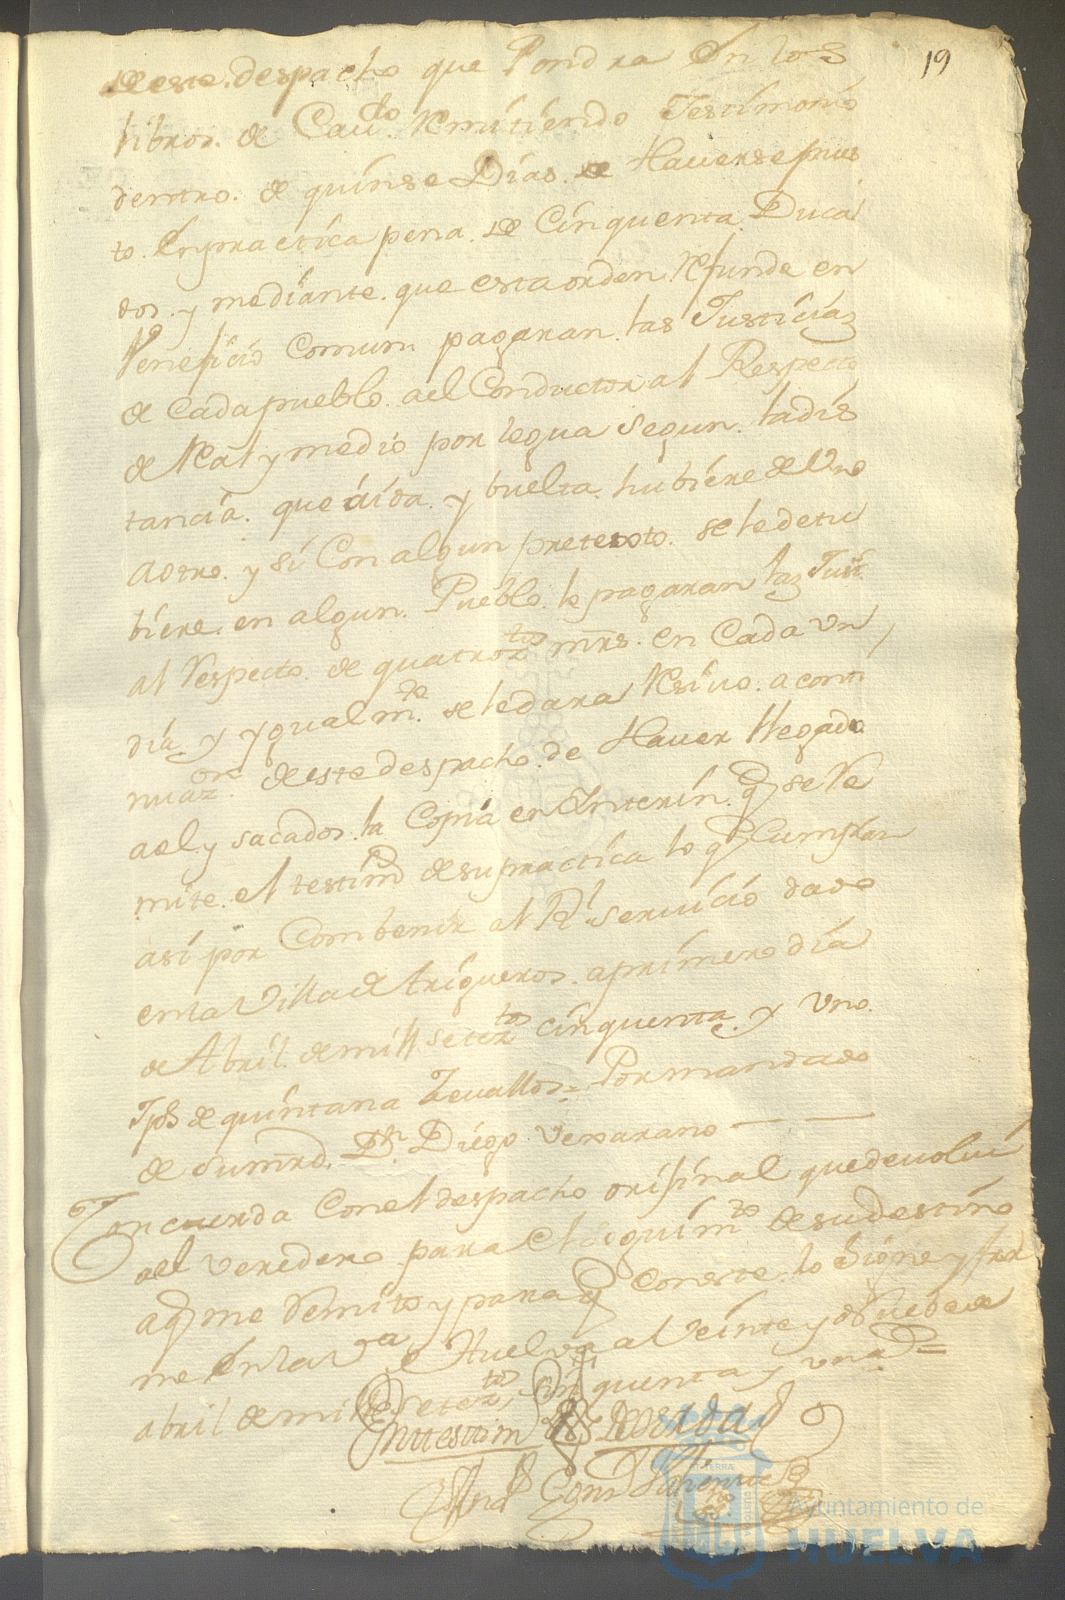 19
de este despacho que Pondra En los
libros de Caudo. Remitiendo Testimonio
dentro de quinse Dias de Hauerse pues
to. En practica pena de Cinquenta Duca
dos y mediante que esta orden Refunde en
Veneficio Comun pagaran las Justicias
de Cada pueblo ael Conductor al Respecto
de Real y medio por legua segun ladis
tancia que áida y buelta hubiere de Uno
aotro y si Con algun pretesto se le detu
biere en algun Pueblo le pagaran las Justs.
al Respecto de quatrotos mrs. en Cada Un
dia y ygualmte. se le dara Resiuo a conti
nuazon. de este despacho de Hauer llegado
ael y sacados la Copia en Interin q se Re
mite el testimo de su practica lo q Cumplan
asi por Combenir al Rl. seruicio dado
en la Villa de trigueros a primero dia
de Abril de mill setetos cinquenta y Uno
de quintana Zeuallos = Por mandado
de su mrd. Dn. Diego Vejarano
Concuerda Con el despacho orijinal que deuolui
ael Veredero para el siguimto de su destino
aq me Remito y para q Conste lo Signe y fir
me En la Va de Huelva al Veinte y Nuebe de
abril de mill setetos Sinquenta y uno =
En testim de Verdad